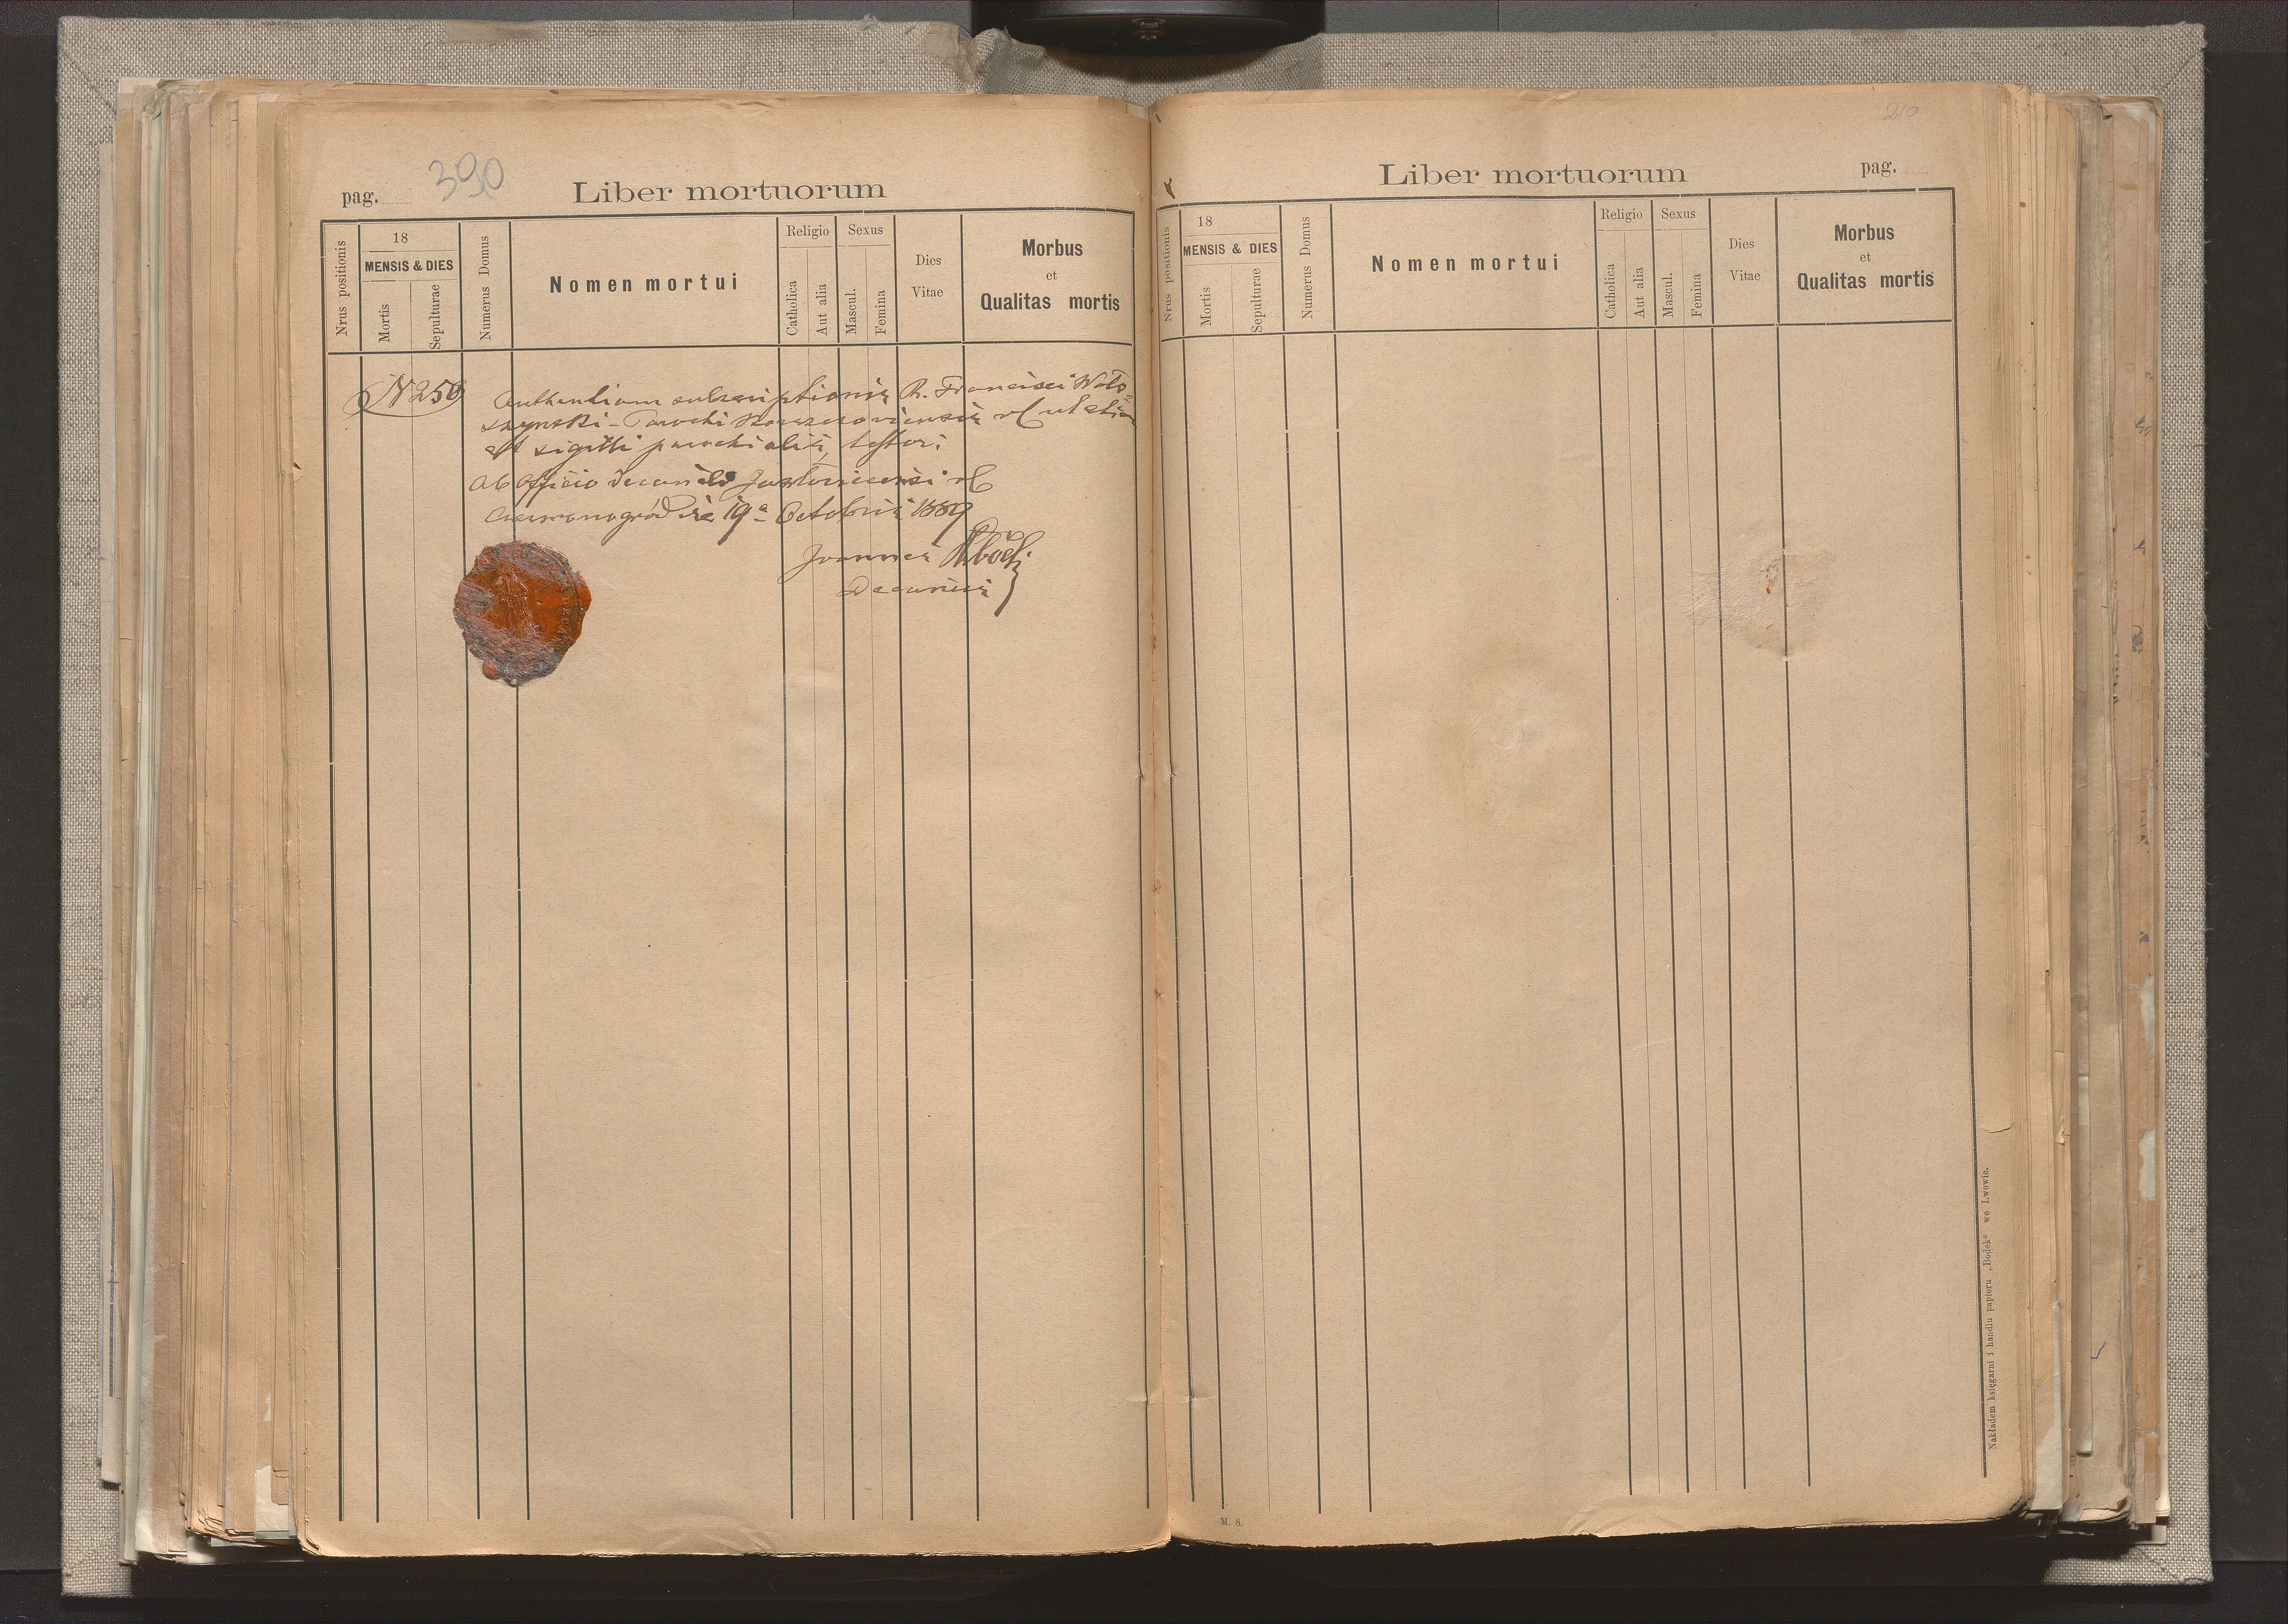 pag. 390
Liber mortuorum
Nrus positionis
18
MENSIS & DIES
Mortis
Sepulturae
Numerus Domus
Nomen mortui
Religio
Catholica
Aut alia
Sexus
Mascul.
Femina
Dies
Vitae
Morbus
et
Qualitas mortis
N 250
Authentiam subscriptionis R. Francisci Woło
szynski - Parochi
et sigilli parochialis, testor:
Ab Officio Decanali
19a Octobris 1889
Joannes
Decanus
210
Liber mortuorum
pag.
Nrus positionis
18
MENSIS & DIES
Mortis
Sepulturae
Numerus Domus
Nomen mortui
Religio
Catholica
Aut alia
Sexus
Mascul.
Femina
Dies
Vitae
Morbus
et
Qualitas mortis
Nakładem księgarni i handlu papieru „Bodek“ we Lwowie.
M. 8.